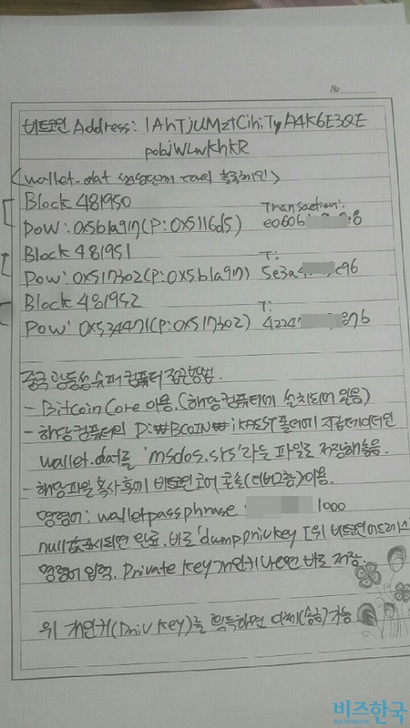 No
비트코인 Address: 1AhTjUMztCihiTyA4K6E3QE
pobjWLwKhKR
<wallet.dat 생성단계 블록체인>
Block 481950
Transaction:
pow: 0x5b1a917(P: 0x5116d5) e060b 8
Block 481951
T:
Pow: 0x517302(P: 0x5b1a917) 5e3a c96
Block 481952
T:
Pow: 0x534471(P: 0x517302) 4224 876
중국 광동성 슈퍼컴퓨터 접근방법.
- Bitcoin Core 이용. (해당컴퓨터에 설치되어 있음)
- 해당컴퓨터의 D:₩BCOIN₩ 폴더에 지갑데이터인
wallet.dat를 'msdos.srs'라는 파일로 저장해놓음.
- 해당파일 복사후에 비트코인 코어 콘솔(디버그창)이용.
명령어: walletpassphrase 1000
null값표시되면 완료. 바로 'dumpprivkey [위 비트코인어드레스]'
명령어 입력. Private Key 개인키 나오면 바로 저장.
위 개인키(Priv key)를 획득하면 이체(송금) 가능
비즈한국